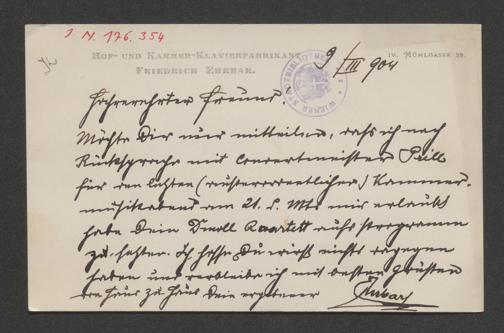 J. N. 176.354
HOF- UND KAMMER-KLAVIERFABRIKANT
FRIEDRICH EHRBAR.
IV, MÜHLGASSE 28.
9/III 904
WIENER STADTBIBLIOTHEK
Hochverehrter Freund!
Möchte Dir nur mitteilen, dass ich nach
Rücksprache mit Concertmeister Prill
für den letzten (ausserordentlichen) Kammer-
musikabend am 21. d. Mts mir erlaubt
habe Dein Dmoll Quartett aufs Programm
zu setzen. Ich hoffe, Du wirst nichts dagegen
haben und verbleibe ich mit besten Grüssten
von Haus zu Haus Dein ergebener
Ehrbar